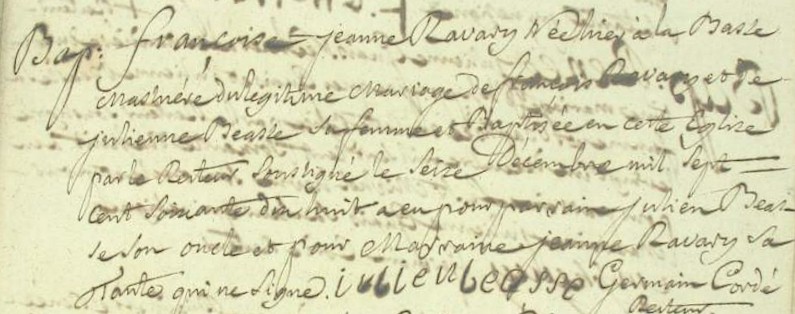 Bap: françoise = jeanne Ravary Née hier à la Basse
Masnéré du légitime Mariage de françois Ravary et de
julienne Beasse sa femme et Baptisée en cette Eglise
par le Recteur Soustigné le Seize Décembre mil Sept =
cent Soixante dix huit a eu pour parrain julien Beas-
se son oncle et pour Marraine jeanne Ravary Sa
Tante qui ne Signe. julien beasse Germain Cordé
Recteur